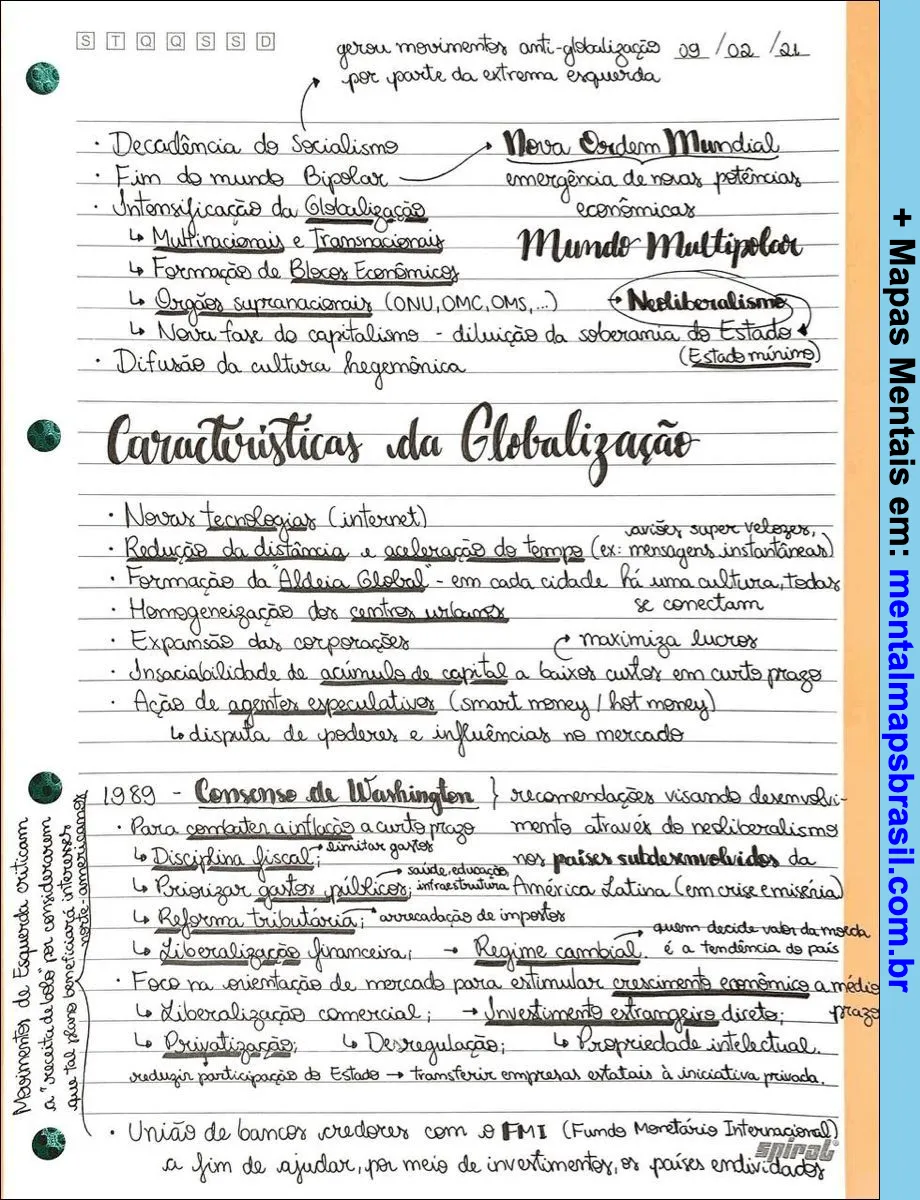 S T Q Q S S D
gerou movimentos anti-globalização 09 / 02 / 21
por parte da extrema esquerda
· Decadência do Socialismo
Nova Ordem Mundial
· Fim do mundo Bipolar
emergência de novas potências
econômicas
· Intensificação da Globalização
↳ Multinacionais e Transnacionais
Mundo Multipolar
↳ Formação de Blocos Econômicos
↳ Orgãos supranacionais (ONU, OMC, OMS, ...)
→ Neoliberalismo
↳ Nova fase do capitalismo - diluição da soberania do Estado
(Estado mínimo)
· Difusão da cultura hegemônica
Características da Globalização
· Novas tecnologias (internet)
aviões super velozes,
· Redução da distância e aceleração do tempo (ex: mensagens instantâneas)
· Formação da "Aldeia Global" - em cada cidade há uma cultura, todas
se conectam
· Homogeneização dos centros urbanos
· Expansão das corporações
maximiza lucros
· Insaciabilidade de acúmulo de capital a baixos custos em curto prazo
· Ação de agentes especulativos (smart money / hot money)
↳ disputa de poderes e influências no mercado
1989 - Consenso de Washington } recomendações visando desenvolvi-
mento através do neoliberalismo
nos países subdesenvolvidos da
América Latina (em crise e miséria)
· Para combater a inflação a curto prazo
↳ Disciplina fiscal; → limitar gastos
↳ Priorizar gastos públicos; → saúde, educação,
infraestrutura
↳ Reforma tributária; → arrecadação de impostos
↳ Liberalização financeira; → Regime cambial. → quem decide valor da moeda
é a tendência do país
· Foco na orientação de mercado para estimular crescimento econômico a médio
prazo
↳ Liberalização comercial; → Investimento estrangeiro direto;
↳ Privatização; ↳ Desregulação; ↳ Propriedade intelectual.
reduzir participação do Estado → transferir empresas estatais à iniciativa privada.
· União de bancos credores com o FMI (Fundo Monetário Internacional)
a fim de ajudar, por meio de investimentos, os países endividados
spiral
Movimentos de Esquerda criticam
a "receita de bolo" por considerarem
que tal plano beneficiará interesses
norte-americanos
+ Mapas Mentais em: mentalmapsbrasil.com.br